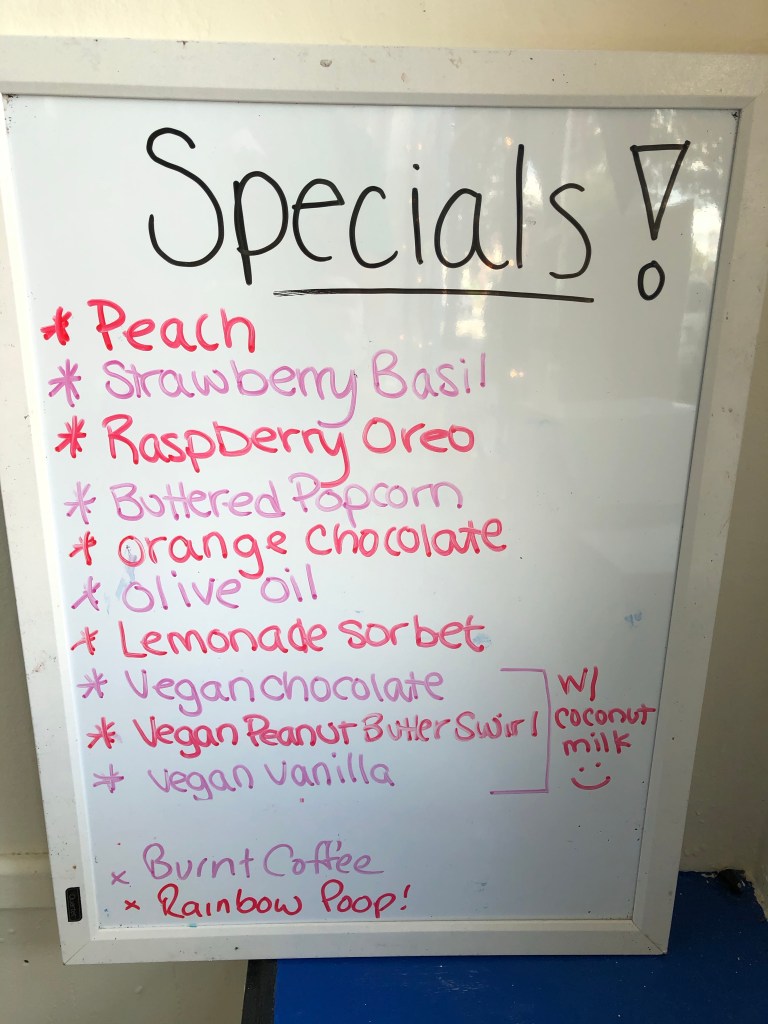 Specials!
* Peach
* Strawberry Basil
* Raspberry Oreo
* Buttered Popcorn
* orange chocolate
* olive oil
* Lemonade sorbet
* Vegan chocolate
* Vegan Peanut Butter Swirl
* Vegan Vanilla
w/
coconut
milk
x Burnt Coffee
x Rainbow Poop!